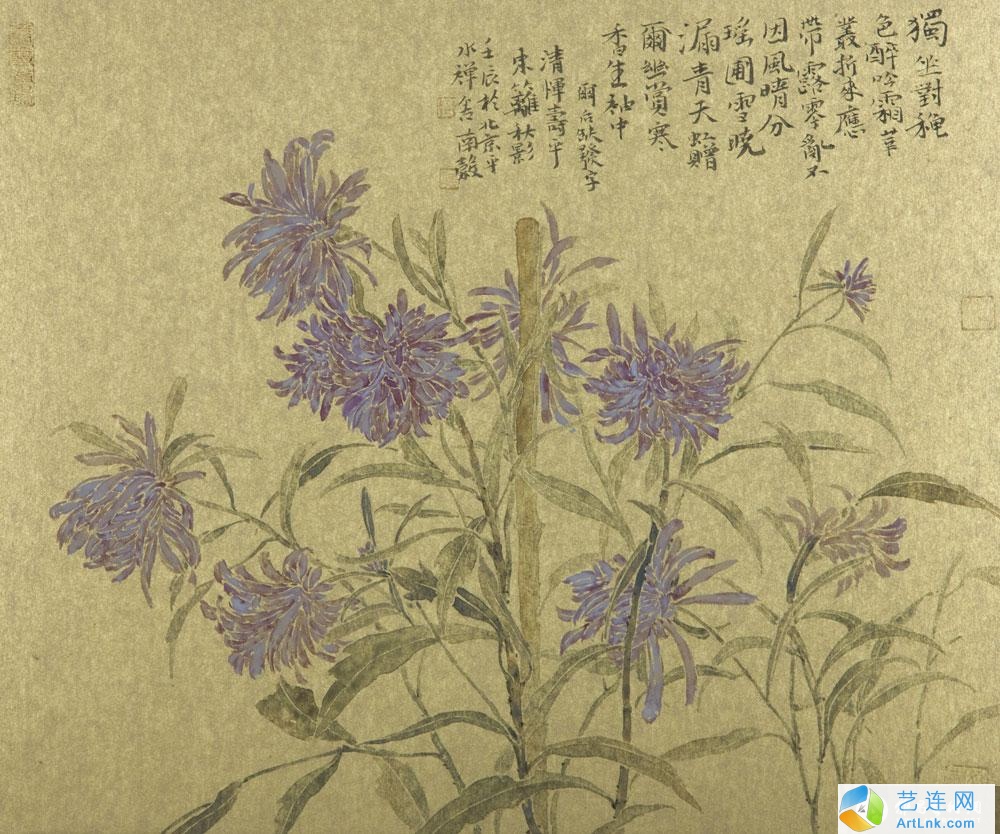 獨坐對穐
色醉吟霜草
叢折來應
帶露零亂不
因風晴分
瑤圃雪曉
漏青天虹贈
爾幽賞寒
香生袖中
爾台缺發字
清惲壽平
東籬秋影
壬辰於北京平
水禅舍南谿
艺连网
ArtLnk.com